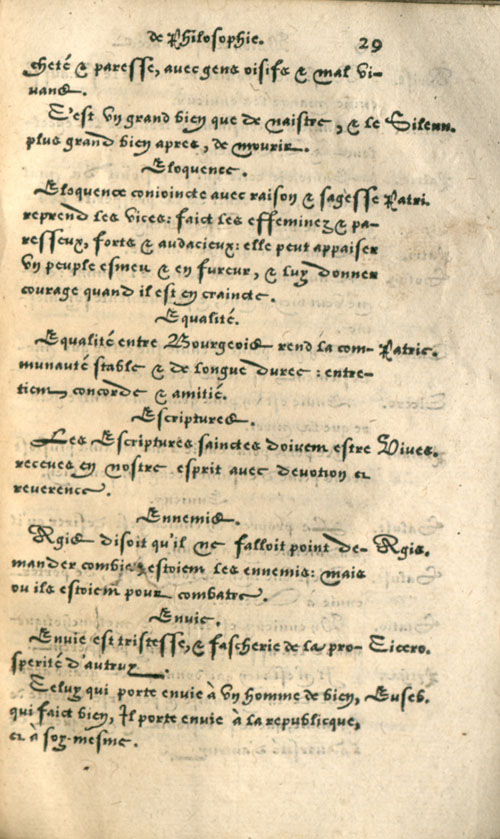 de Philosophie. 29
cheté & paresse, avec gens oisifs & mal vi-
vans.
C'est vn grand bien que de naistre, & le Silenn.
plus grand bien apres, de mourir.
Eloquence.
Eloquence conioincte avec raison & sagesse Patri.
reprend les vices: faict les effeminez & pa-
resseux, forts & audacieux: elle peut appaiser
vn peuple esmeu & en fureur, & luy donner
courage quand il est en craincte.
Equalité.
Equalité entre Bourgeois rend la com- Patric.
munauté stable & de longue duree: entre-
tien, concorde & amitié.
Escriptures.
Les Escriptures sainctes doivent estre Vives.
receues en nostre esprit avec devotion et
reverence.
Ennemis.
Agis disoit qu'il ne falloit point de- Agis.
mander combien estoient les ennemis: mais
ou ils estoient pour combatre.
Envie.
Envie est tristesse, & fascherie de la pro- Cicero.
sperité d'autruy.
Celuy qui porte envie à vn homme de bien, Euseb.
qui faict bien, Il porte envie à la republicque,
et à soy-mesme.